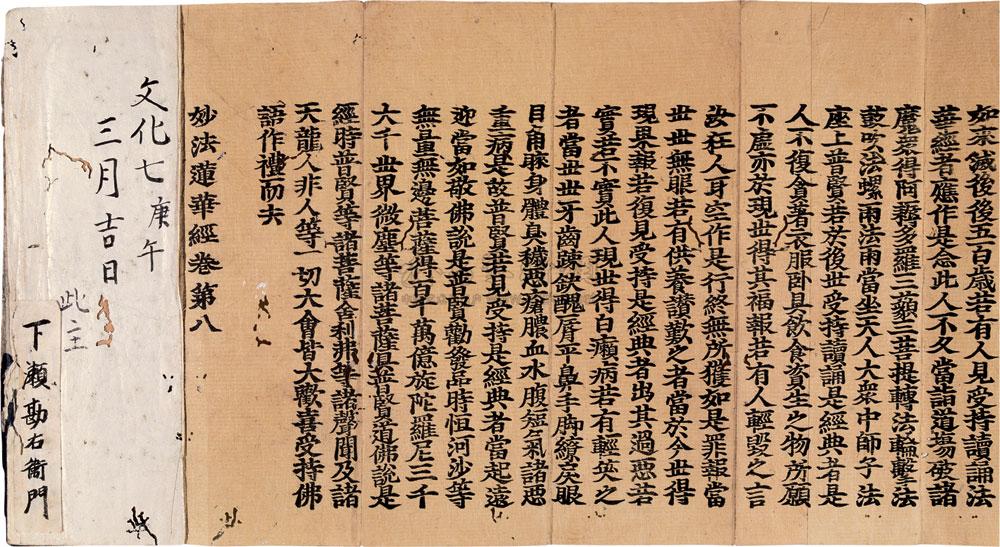 如来滅後後五百歳若有人見受持讀誦法
華經者應作是念此人不久當詣道場破諸
魔衆得阿耨多羅三藐三菩提轉法輪擊法
鼓吹法螺雨法雨當坐天人大衆中師子法
座上普賢若於後世受持讀誦是經典者是
人不復貪著衣服卧具飲食資生之物所願
不虛亦於現世得其福報若有人輕毀之言
汝狂人耳空作是行終無所獲如是罪報當
世世無眼若有供養讚歎之者當於今世得
現果報若復見受持是經典者出其過惡若
實若不實此人現世得白癩病若有輕笑之
者當世世牙齒踈缺醜脣平鼻手脚繚戾眼
目角睞身體臭穢惡瘡膿血水腹短氣諸惡
重病是故普賢若見受持是經典者當起遠
迎當如敬佛說是普賢勸發品時恒河沙等
無量無邊菩薩得百千萬億旋陀羅尼三千
大千世界微塵等諸菩薩具普賢道佛說是
經時普賢等諸菩薩舍利弗等諸聲聞及諸
天龍人非人等一切大會皆大歡喜受持佛
語作禮而去
妙法蓮華經卷第八
文化七庚午
三月吉日
此主
下瀬勘右衞門